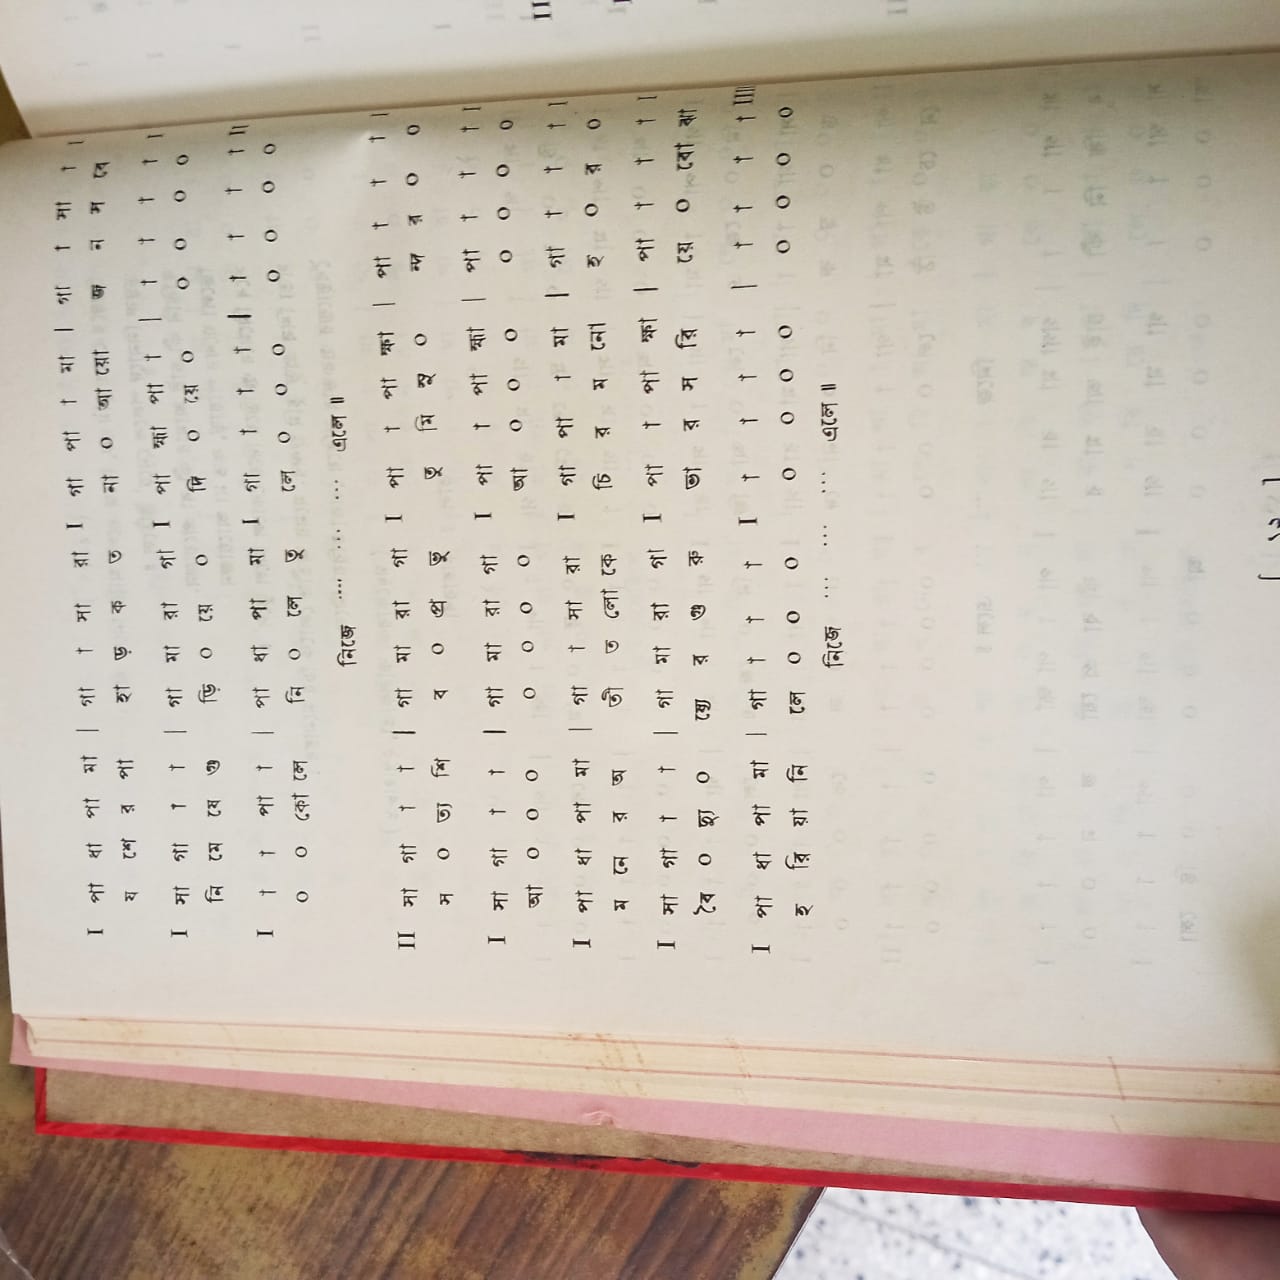 I পা ধা পা মা | গা † মা রা I গা পা † মা | গা † মা † I
য শে র পা হা ড় ক ত না ০ আ য়ো জ ন ম বে
I মা গা † † | গা মা রা গা I পা হ্মা পা † | † † † † I
নি মে ষে গু ড়ি ০ য়ে ০ দি ০ য়ে ০ ০ ০ ০ ০
I † † পা † | পা ধা পা মা I গা † † † | † † † † II
০ ০ কো লে নি ০ লে তু লে ০ ০ ০ ০ ০ ০ ০
নিজে .... ... ... এলে॥
II মা গা † † | গা মা রা গা I পা † পা হ্মা | পা † † † I
স ০ ত্য শি ব ০ প্র ভূ তু মি সু ০ ন্দ র ০ ০
I মা গা † † | গা মা রা গা I পা † পা হ্মা | পা † † † I
আ ০ ০ ০ ০ ০ ০ ০ আ ০ ০ ০ ০ ০ ০ ০
I পা ধা পা মা | গা † মা রা I গা পা † মা | গা † † † I
ম নে র অ তী ত লো কে চি র ম নো হ ০ র ০
I মা গা † † | গা মা রা গা I পা † পা হ্মা | পা † † † I
বৈ ০ দ্যু ০ ষ্যে র গু রু ভা র ম রি য়ে ০ বো ঝা
I পা ধা পা মা | গা † † † I † † † † | † † † † IIII
হ রি য়া নি লে ০ ০ ০ ০ ০ ০ ০ ০ ০ ০ ০
নিজে ... ... ... এলে॥